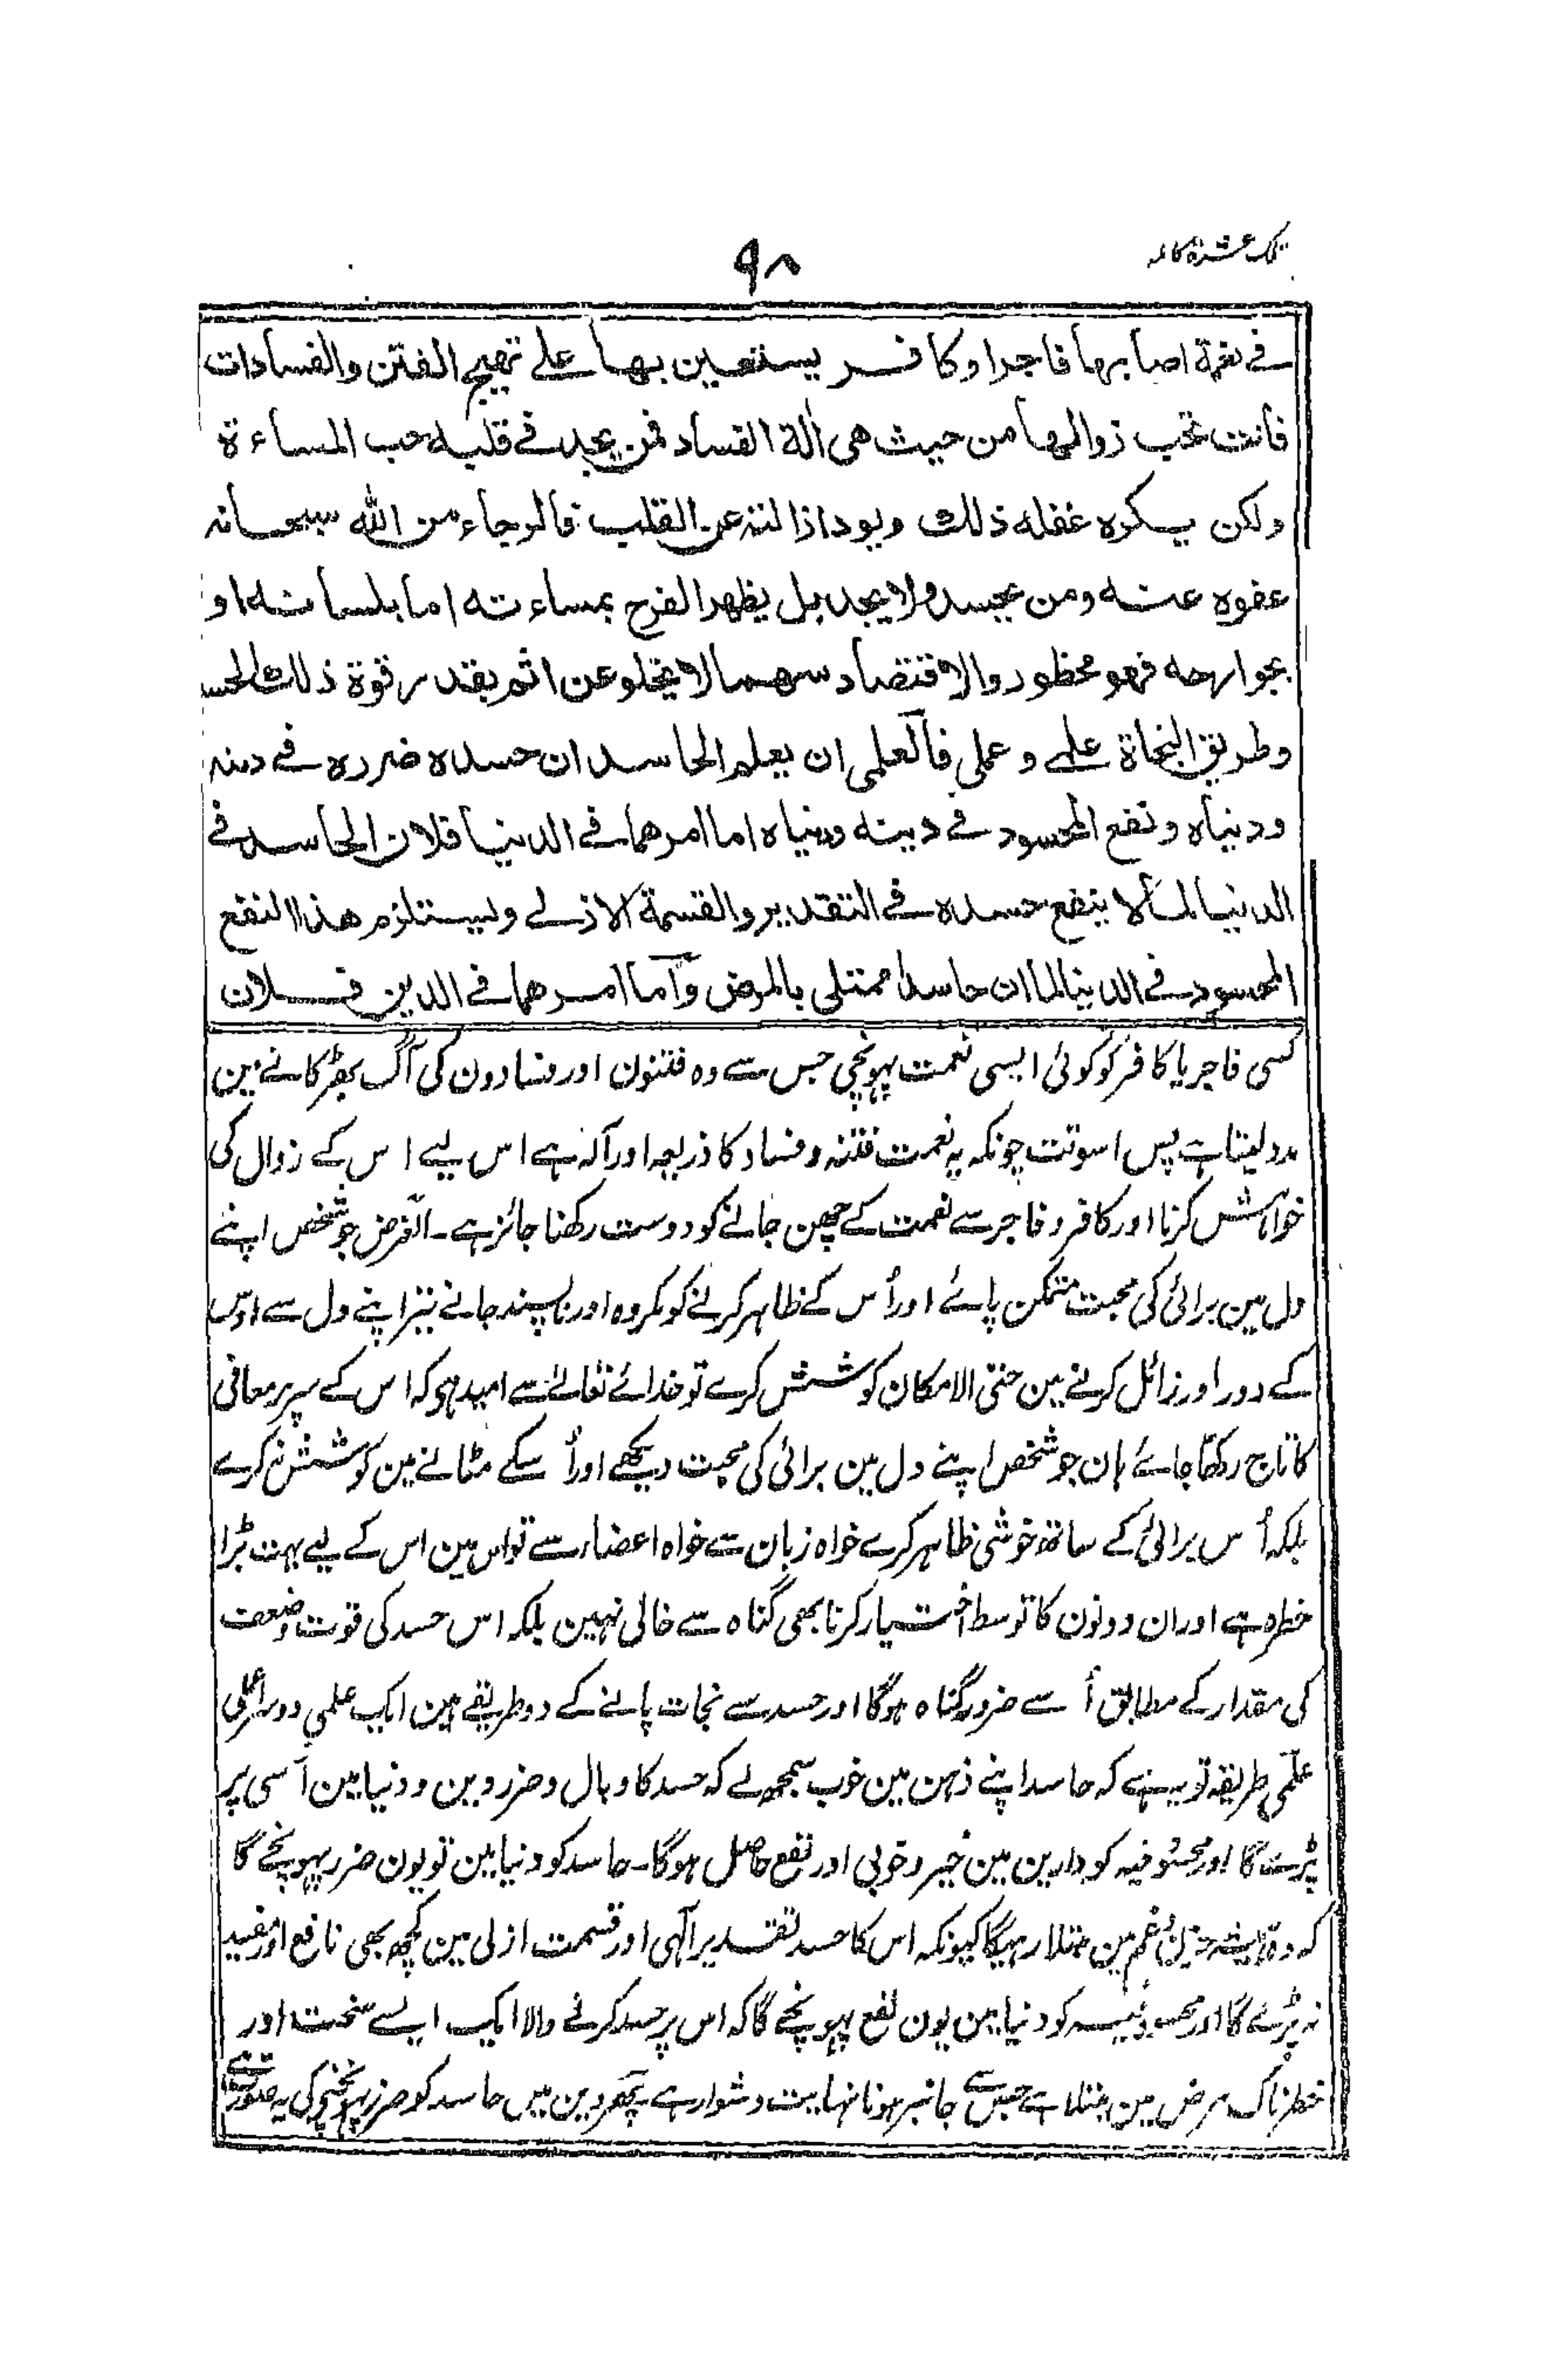 تلک عشرۃ کاملہ
۹۸
فے نعمة اصابها فاجرا وكافر يستعين بها علے تهييج الفتن والفسادات
فانت تحب زوالها من حيث هی اٰلة الفساد فمن يجد فے قلبه حب المساءة
ولكن يكره غفله ذلك ويود ازالته عن القلب فالرجاء من الله سبحانه
عفوه عنه ومن يحسد ولا يجد بل يظهر الفرح بمساءته اما بلسانه او
بجوارحه فهو محظور والاقتصاد سهما لا يخلو عن اثم بقدر قوة ذلك الحسد
وطريق النجاة علمے وعملی فالعلمی ان يعلم الحاسد ان حسده ضرره فے دينه
ودنياه ونفع المحسود فے دينه ودنياه اما امرهما فے الدنيا فلان الحاسد فے
الدنيا لما لا ينفع حسده فے التقدير والقسمة الازلے وليستلزم هذا النفع
المحسود فے الدنيا لما ان حاسدا ممتلی بالمرض واما امرهما فے الدين فلان
کسی فاجر یا کافر کو کوئی ایسی نعمت پہونچی جس سے وہ فتنون اور فسادون کی آگ بھڑکانے مین
مدد لیتا ہے پس اسوقت چونکہ یہ نعمت فتنہ وفساد کا ذریعہ اور آلہ ہے اس لیے اس کے زوال کی
خواہش کرنا اور کافر وفاجر سے نعمت کے چھن جانے کو دوست رکھنا جائز ہے۔ الغرض جو شخص اپنے
دل مین برائی کی محبت متمکن پائے اور اُس کے ظاہر کرنے کو مکروہ اور ناپسند جانے نیز اپنے دل سے اوس
کے دور اور زائل کرنے مین حتی الامکان کوشش کرے تو خدائے تعالےٰ سے امید ہی کہ اس کے سر پر معافی
کا تاج رکھا جائے ہان جو شخص اپنے دل مین برائی کی محبت دیکھے اور اُسکے مٹانے مین کوشش نہ کرے
بلکہ اُس برائی کے ساتھ خوشی ظاہر کرے خواہ زبان سے خواہ اعضاء سے تو اس مین اس کے لیے بہت بڑا
خطرہ ہے اور ان دونون کا توسط اختیار کرنا بھی گناہ سے خالی نہین بلکہ اس حسد کی قوت وضعف
کی مقدار کے مطابق اُسے ضرور گناہ ہوگا اور حسد سے نجات پانے کے دو طریقے ہین ایک علمی دوسرا عملی
علمی طریقہ تو یہ ہے کہ حاسد اپنے ذہن مین خوب سمجھ لے کہ حسد کا وبال وضرر دین ودنیا مین اُسی پر
پڑے گا اور محسود فیہ کو دارین مین خیر وخوبی اور نفع حاصل ہوگا۔ حاسد کو دنیا مین تو یون ضرر پہونچے گا
کہ وہ ہمیشہ حزن وغم مین مبتلا رہیگا کیونکہ اس کا حسد تقدیر الٰہی اور قسمت ازلی مین کچھ بھی نافع اور مفید
نہ پڑے گا اور محسود فیہ کو دنیا مین یون نفع پہونچے گا کہ اس پر حسد کرنے والا ایک ایسے سخت اور
خطرناک مرض مین مبتلا ہے جس سے جانبر ہونا نہایت دشوار ہے پھر دین مین حاسد کو ضرر پہونچنے کی یہ صورت ہے